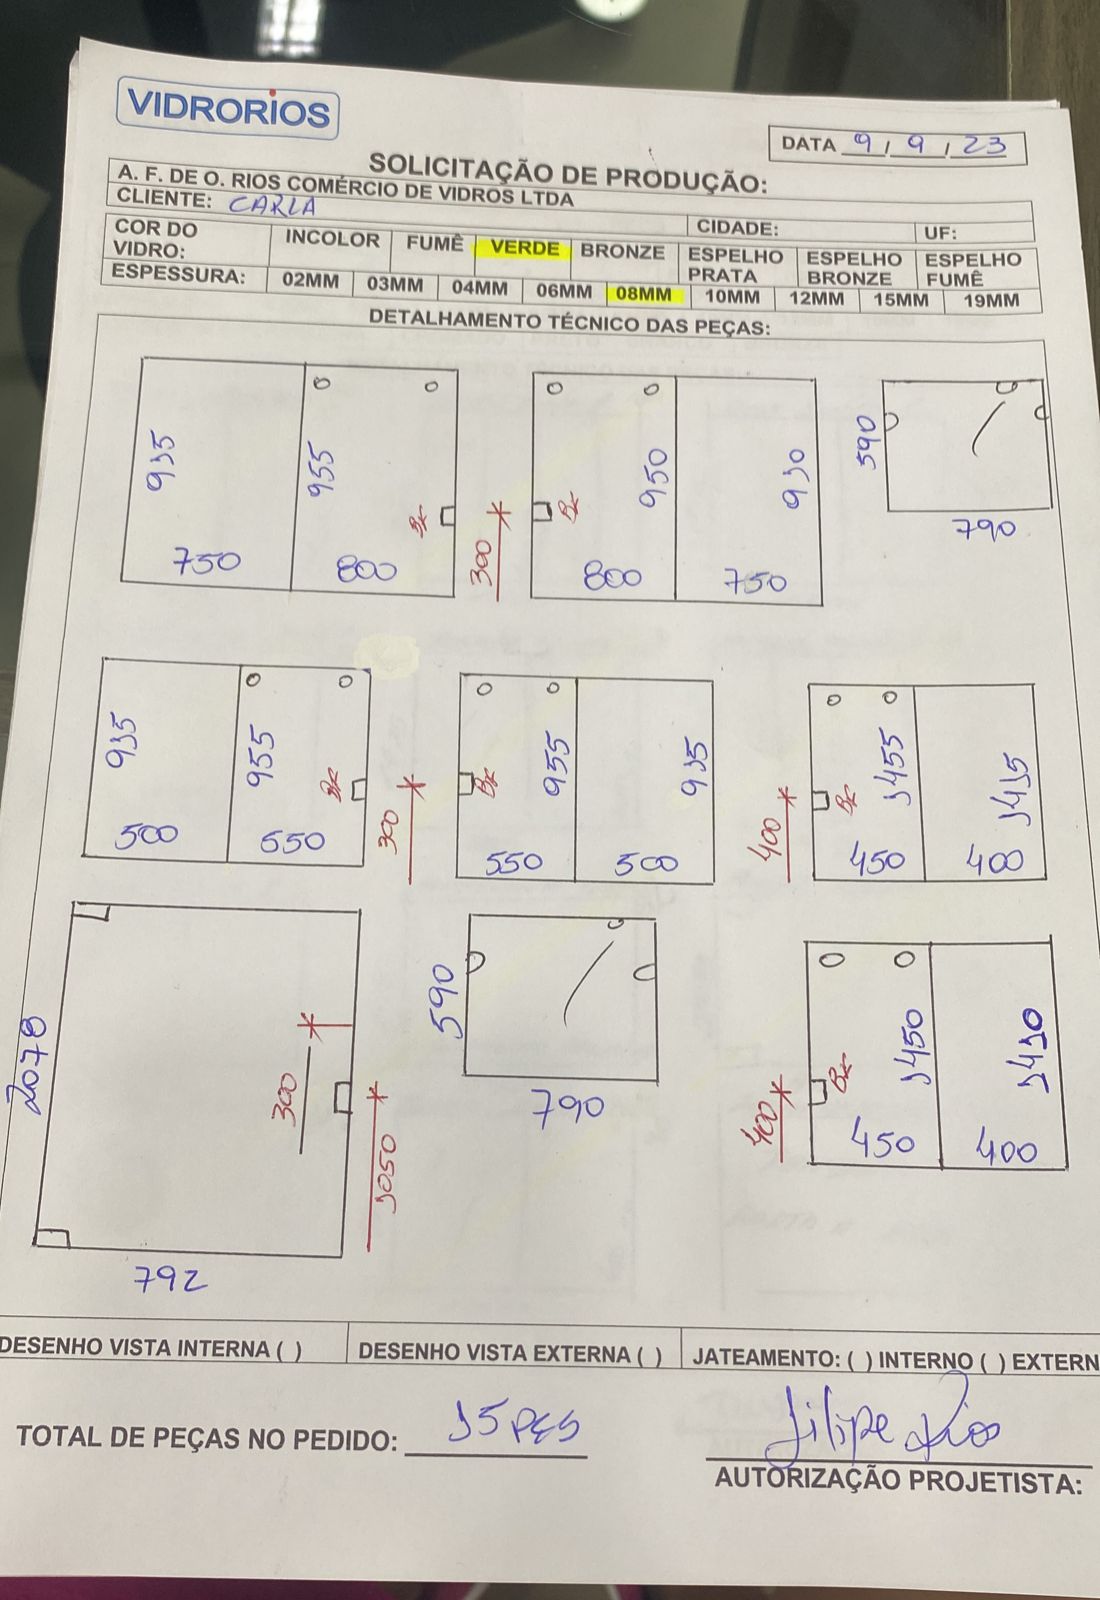 VIDRORIOS
DATA 9 / 9 / 23
SOLICITAÇÃO DE PRODUÇÃO:
A. F. DE O. RIOS COMÉRCIO DE VIDROS LTDA
CLIENTE: CARLA CIDADE: UF:
COR DO VIDRO: INCOLOR FUMÊ VERDE BRONZE ESPELHO PRATA ESPELHO BRONZE ESPELHO FUMÊ
ESPESSURA: 02MM 03MM 04MM 06MM 08MM 10MM 12MM 15MM 19MM
DETALHAMENTO TÉCNICO DAS PEÇAS:
915 955
750 800
300
950 910
800 750
590
790
915 955
500 550
300
955 915
550 500
400
1455 1415
450 400
2078
300
1050
792
590
790
400
1450 1410
450 400
DESENHO VISTA INTERNA ( ) DESENHO VISTA EXTERNA ( ) JATEAMENTO: ( ) INTERNO ( ) EXTERN
TOTAL DE PEÇAS NO PEDIDO: 15 PÇS
Filipe Rios
AUTORIZAÇÃO PROJETISTA: